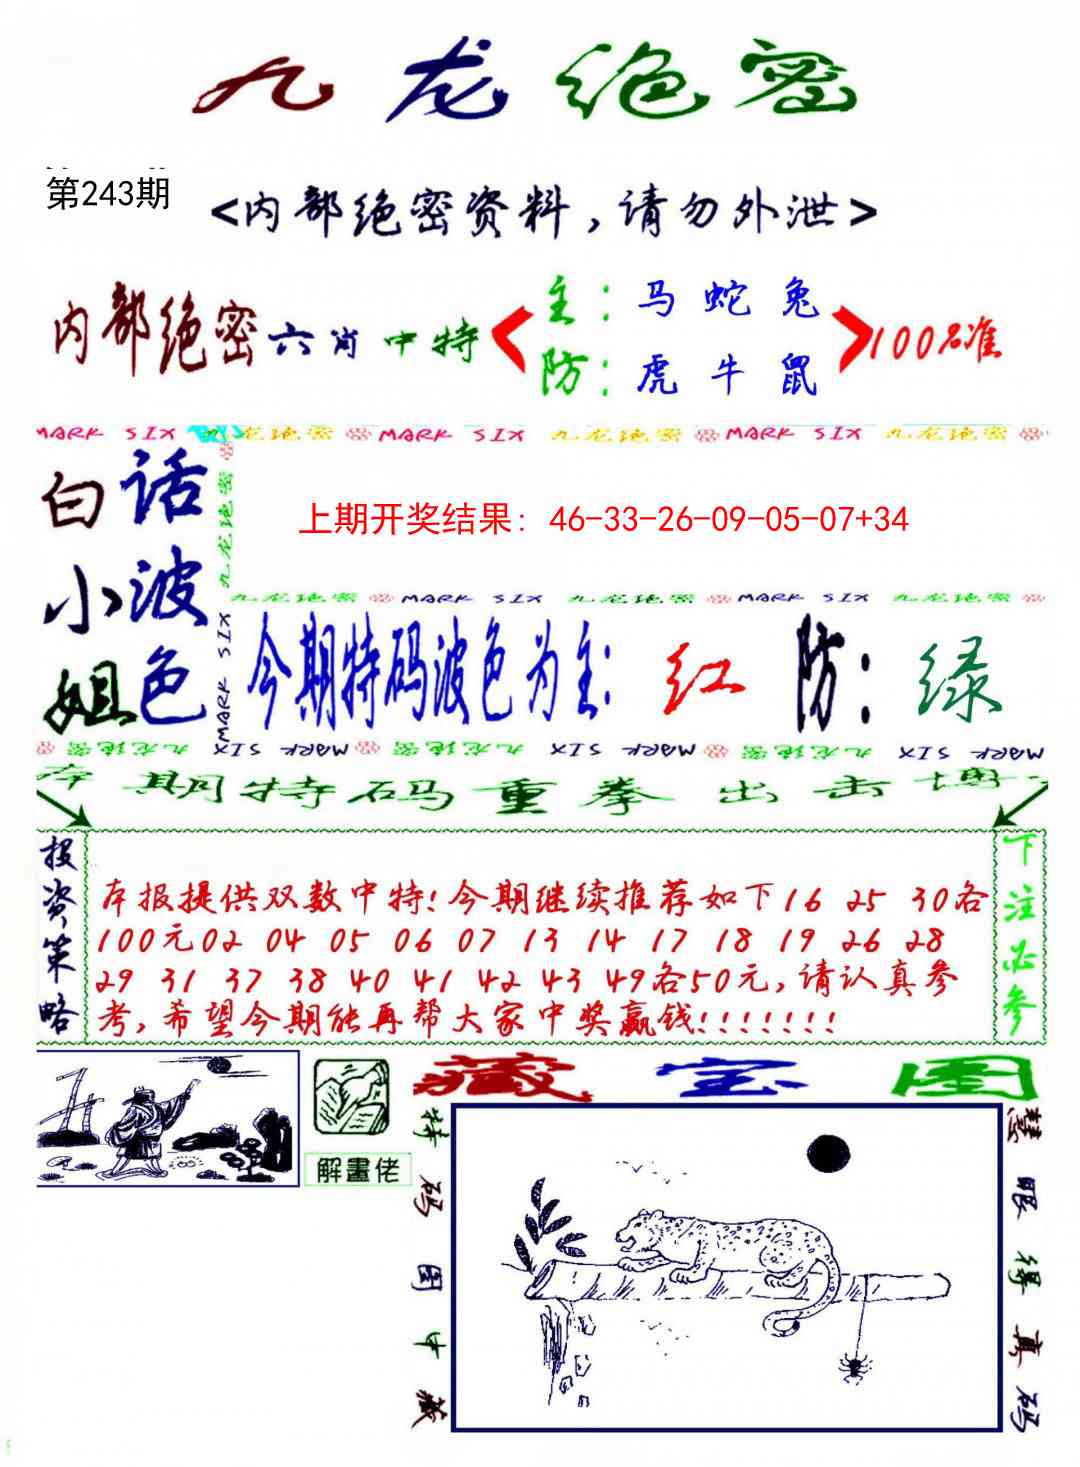 九龙绝密
第243期
<内部绝密资料,请勿外泄>
内部绝密六肖中特
主：马 蛇 兔
防：虎 牛 鼠
100%准
MARK SIX 九龙绝密 MARK SIX 九龙绝密 MARK SIX 九龙绝密
白话
小波
姐色
九龙绝密
MARK SIX
上期开奖结果: 46-33-26-09-05-07+34
九龙绝密 MARK SIX 九龙绝密 MARK SIX 九龙绝密
今期特码波色为主: 红 防: 绿
九龙绝密 MARK SIX 九龙绝密 MARK SIX 九龙绝密 MARK SIX
本期特码重拳出击博一
投资策略
本报提供双数中特!今期继续推荐如下16 25 30各
100元02 04 05 06 07 13 14 17 18 19 26 28
29 31 37 38 40 41 42 43 49各50元,请认真参
考,希望今期能再帮大家中奖赢钱!!!!!!!
下注必参
解畫佬
藏宝图
特码图中藏
慧眼得真码